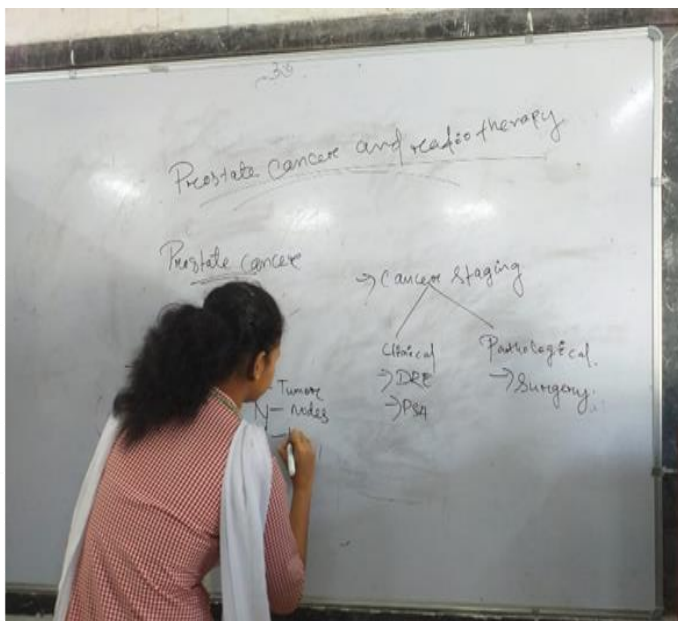 Preostate cancere and readiotherapy
Prostate cancere
→ Cancere staging
Clinical
→ DRE
→ PSA
Pathological.
→ Surgery.
Tumore
N – Nodes